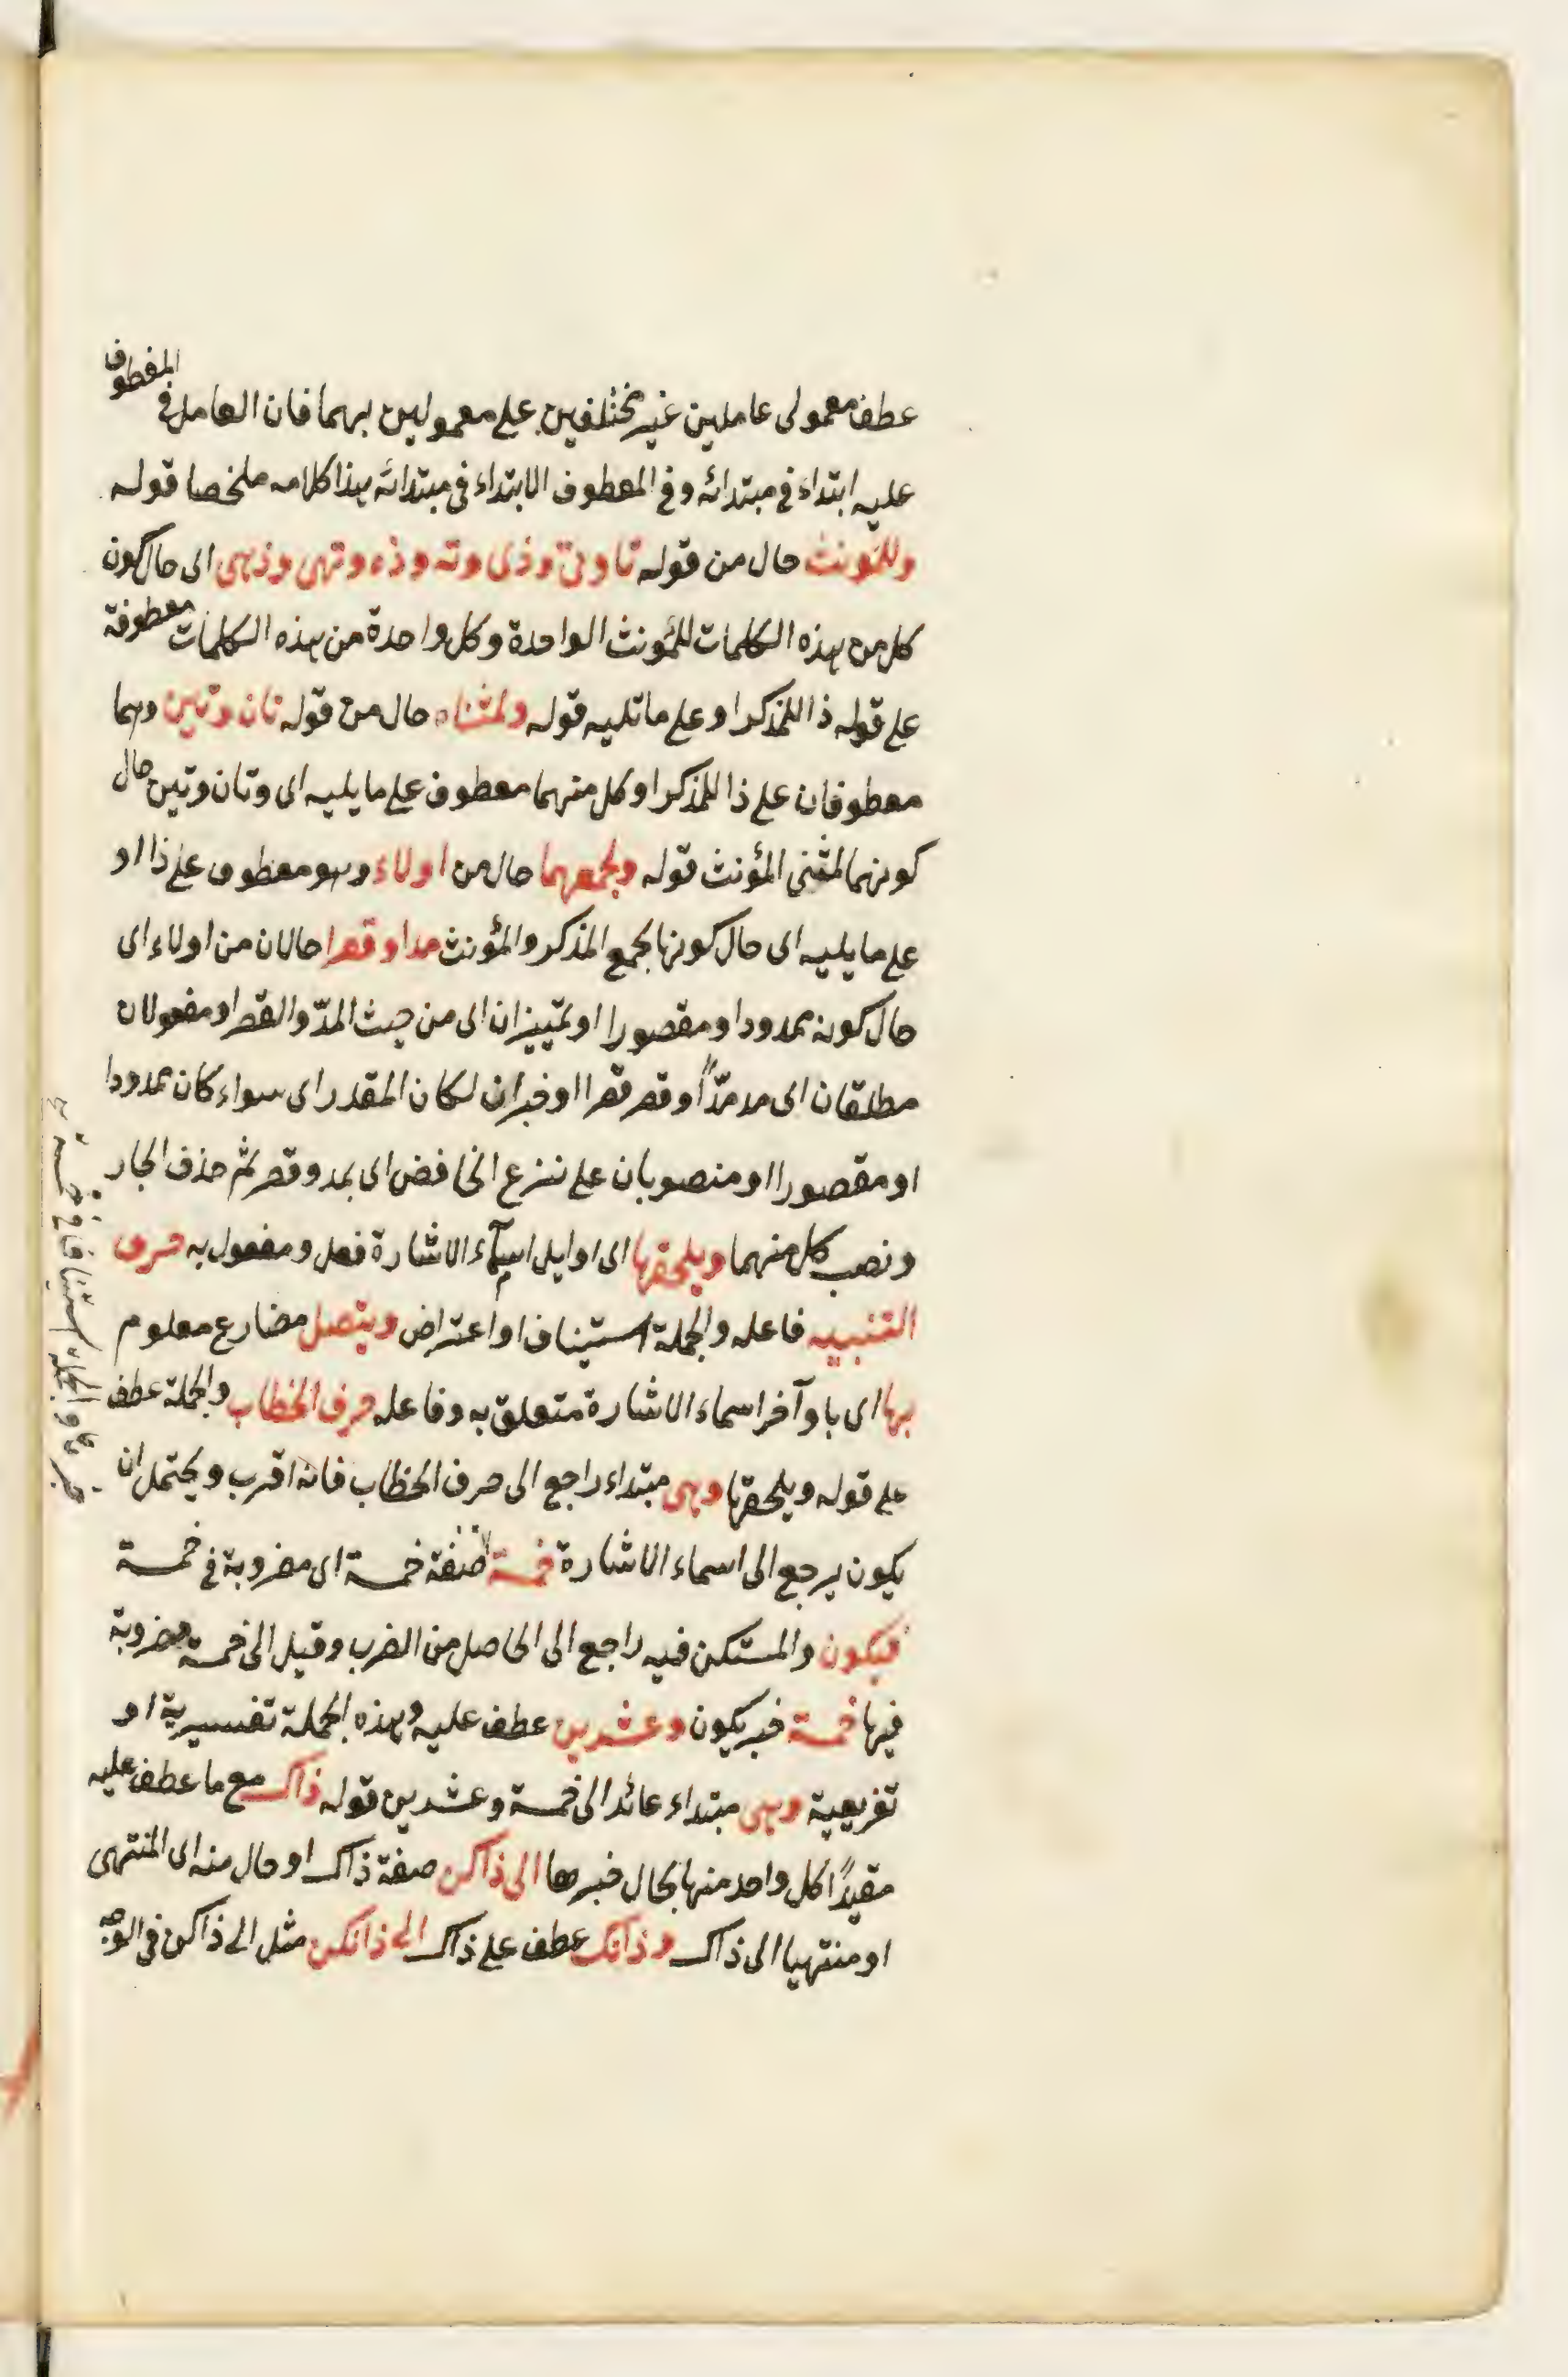 عطف معمولى عاملين غير مختلفين على معمولين لهما فان العامل فى المعطوف
عليه ابتداء فى مبتدائه وفى المعطوف الابتداء فى مبتدائه هذا كلامه ملخصا قوله
وللمؤنث حال من قوله تا وتى وذى وته وذه وتهى وذهى اى حال كون
كل من هذه الكلمات للمؤنث الواحدة وكل واحدة من هذه الكلمات معطوفة
على قوله ذا للمذكر او على ما تليه قوله ولمثناه حال من قوله تان وتين وهما
معطوفان على ذا للمذكر او كل منهما معطوف على ما يليه اى وتان وتين حال
كونهما لمثنى المؤنث قوله ولجمعهما حال من اولاء وهو معطوف على ذا او
على ما يليه اى حال كونها لجمع المذكر والمؤنث مدا وقصرا حالان من اولاء اى
حال كونه ممدودا ومقصورا او تمييزان اى من حيث المدّ والقصر او مفعولان
مطلقان اى مد مدّاً او قصر قصرا او خبران لكان المقدر اى سواء كان ممدودا
او مقصورا او منصوبان على نزع الخافض اى بمد وقصر ثم حذف الجار
ونصب كل منهما ويلحقها اى اوايل اسمآء الاشارة فعل ومفعول به حرف
التنبيه فاعله والجملة استيناف او اعتراض ويتصل مضارع معلوم
بها اى باوآخر اسماء الاشارة متعلق به وفاعله حرف الخطاب والجملة عطف
على قوله ويلحقها وهى مبتداء راجع الى حرف الخطاب فانه اقرب ويحتمل ان
يكون يرجع الى اسماء الاشارة خمسة صفة خمسة اى مضروبة فى خمسة
فيكون والمستكن فيه راجع الى الحاصل من الضرب وقيل الى خمسة مضروبة
فيها خمسة خبر يكون وعشرين عطف عليه وهذه الجملة تفسيرية او
تفريعية وهى مبتداء عائد الى خمسة وعشرين قوله ذاك مع ما عطف عليه
مقيدًا كل واحد منها بحال خبرها الى ذاكن صفة ذاك او حال منه اى المنتهى
او منتهيا الى ذاك وذانك عطف على ذاك الى ذانكن مثل الى ذاكن فى الوجه